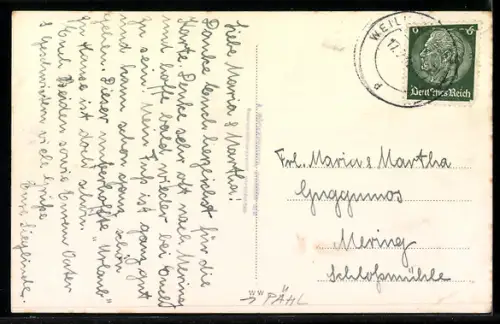 Liebe Maria & Martha!
Danke Euch herzlichst für die
Karte. Denke sehr oft nach Mering
und hoffe bald wieder bei Euch
zu sein. Mein Fuß ist ganz gut
und kann schon ganz schön
gehen. Dieser unverhoffte "Urlaub"
zu Hause ist doch schön.
Euch Beiden sowie Eurem Vater
& Geschwistern viele Grüße
Eure Sieglinde.
Frl. Maria & Martha
Guggumos
Mering
Schloßmühle
→ PÄHL
WEILH
6
Deutsches Reich